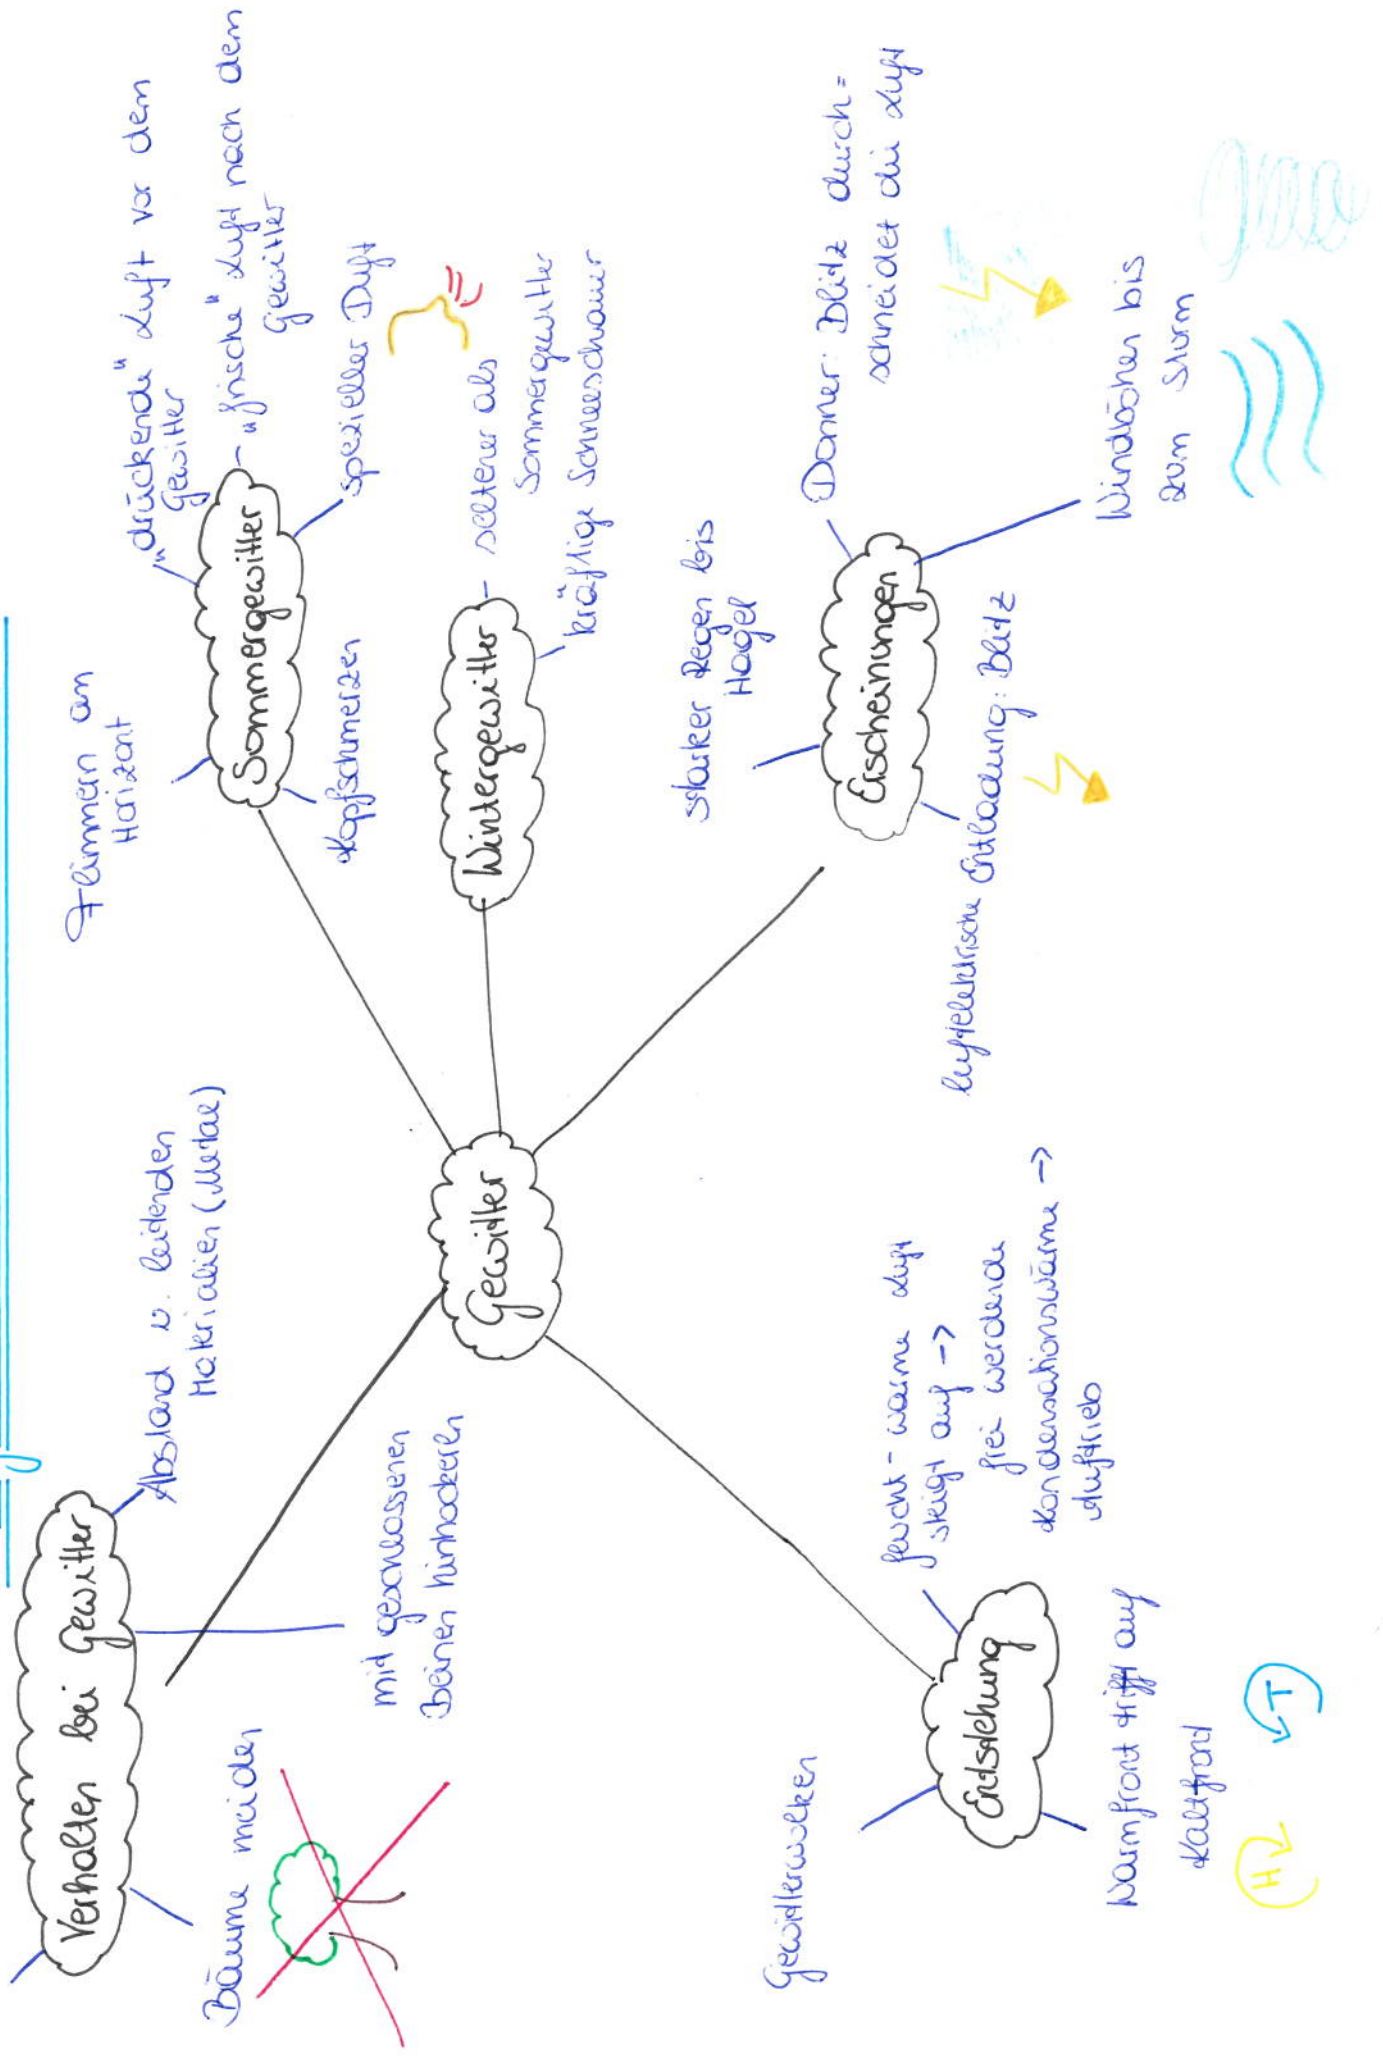 Verhalten bei Gewitter
Abstand v. leitenden
Materialien (Metal)
mit geschlossenen
Beinen hinhockerln
Bäume meiden
Flimmern am
Horizont
Sommergewitter
"drückende" Luft vor dem
Gewitter
"frische" Luft nach dem
Gewitter
spezieller Duft
Kopfschmerzen
Wintergewitter
seltener als
Sommergewitter
kräftige Schneeschauer
Gewitter
starker Regen bis
Hagel
Erscheinungen
Donner: Blitz durch=
schneidet die Luft
Windböhen bis
zum Sturm
luftelektrische Entladung: Blitz
Gewitterwolken
Entstehung
feucht-warme Luft
steigt auf ->
frei werdende
Kondensationswärme ->
Auftrieb
Warmfront trifft auf
Kaltfront
H
T